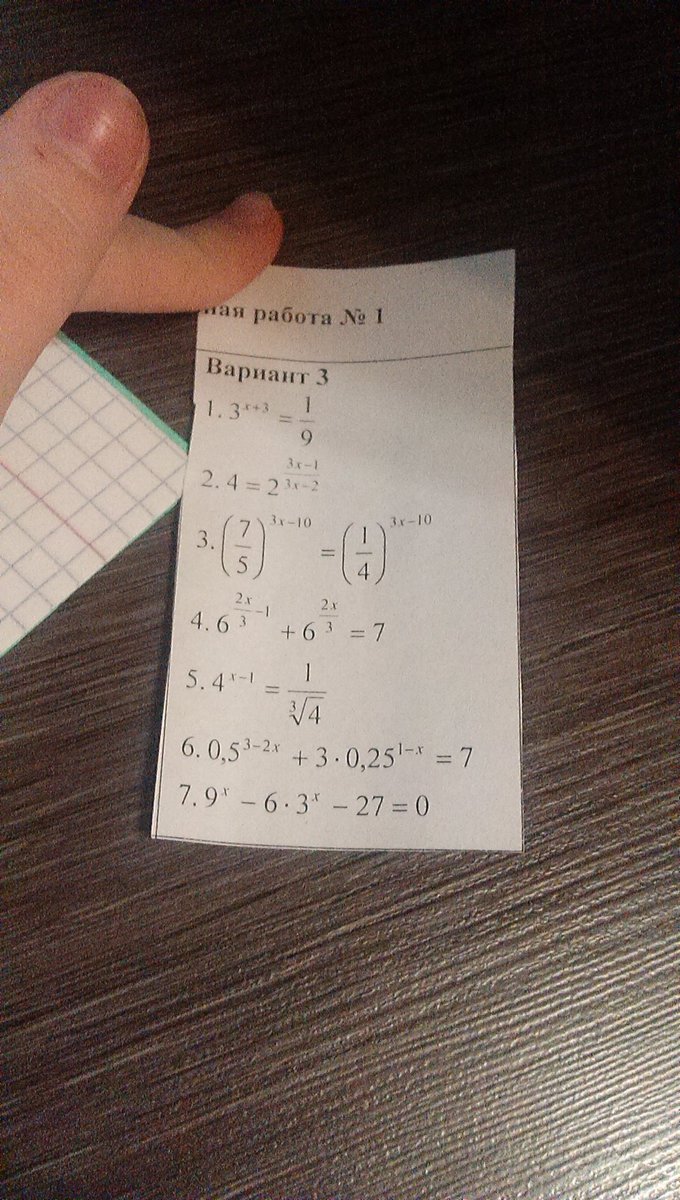 ная работа № 1
Вариант 3
1. 3^{x+3} = \frac{1}{9}
2. 4 = 2^{\frac{3x-1}{3x-2}}
3. \left(\frac{7}{5}\right)^{3x-10} = \left(\frac{1}{4}\right)^{3x-10}
4. 6^{\frac{2x}{3}-1} + 6^{\frac{2x}{3}} = 7
5. 4^{x-1} = \frac{1}{\sqrt[3]{4}}
6. 0,5^{3-2x} + 3 \cdot 0,25^{1-x} = 7
7. 9^x - 6 \cdot 3^x - 27 = 0